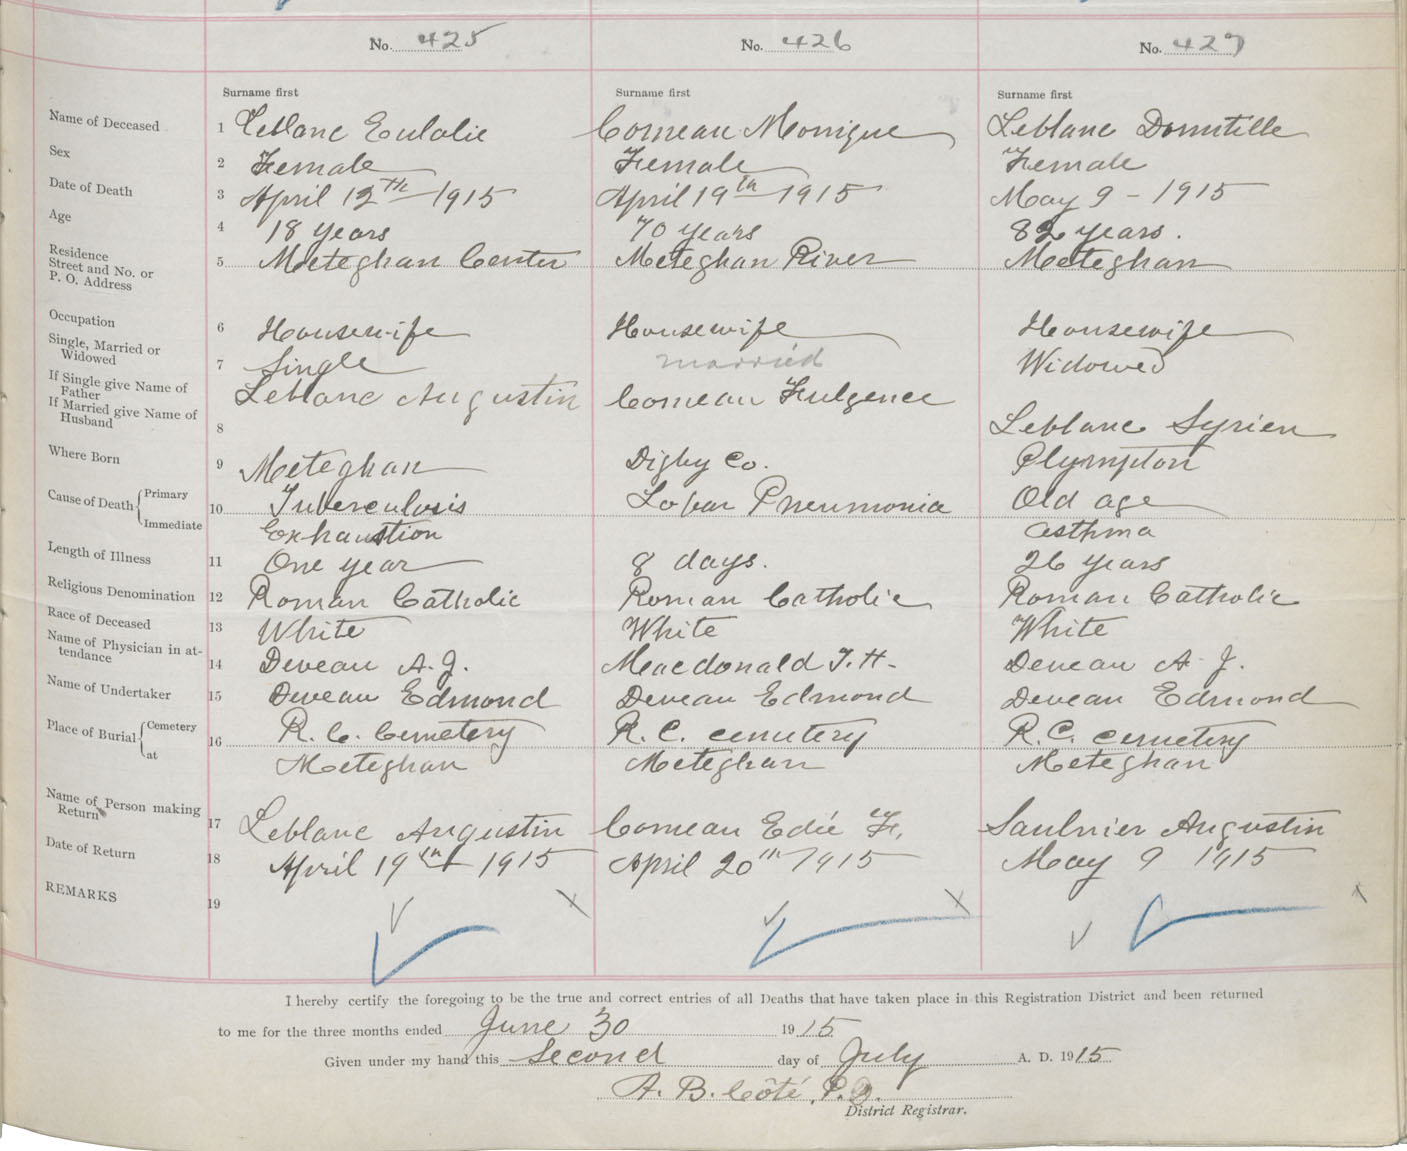 No. 425 No. 426 No. 427
Surname first Surname first Surname first
Name of Deceased 1 Leblanc Eulalie Comeau Monique Leblanc Domitille
Sex 2 Female Female Female
Date of Death 3 April 12th 1915 April 19th 1915 May 9 - 1915
Age 4 18 years 70 years 82 years.
Residence
Street and No. or
P. O. Address 5 Meteghan Center Meteghan River Meteghan
Occupation 6 Housewife Housewife Housewife
Single, Married or
Widowed 7 Single married Widowed
If Single give Name of
Father Leblanc Augustin Comeau Fulgence
If Married give Name of
Husband 8 Leblanc Syrien
Where Born 9 Meteghan Digby Co. Plympton
Cause of Death { Primary 10 Tuberculosis Lobar Pneumonia Old age
Immediate Exhaustion asthma
Length of Illness 11 One year 8 days. 26 years
Religious Denomination 12 Roman Catholic Roman Catholic Roman Catholic
Race of Deceased 13 White White White
Name of Physician in at-
tendance 14 Deveau A. J. Macdonald T. H- Deveau A. J.
Name of Undertaker 15 Deveau Edmond Deveau Edmond Deveau Edmond
Place of Burial { Cemetery 16 R. C. Cemetery R. C. cemetery R. C. cemetery
at Meteghan Meteghan Meteghan
Name of Person making
Return 17 Leblanc Augustin Comeau Edié F. Saulnier Augustin
Date of Return 18 April 19th 1915 April 20th 1915 May 9 1915
REMARKS 19
I hereby certify the foregoing to be the true and correct entries of all Deaths that have taken place in this Registration District and been returned
to me for the three months ended June 30 1915
Given under my hand this Second day of July A. D. 1915
A. B. Côté, P.
District Registrar.